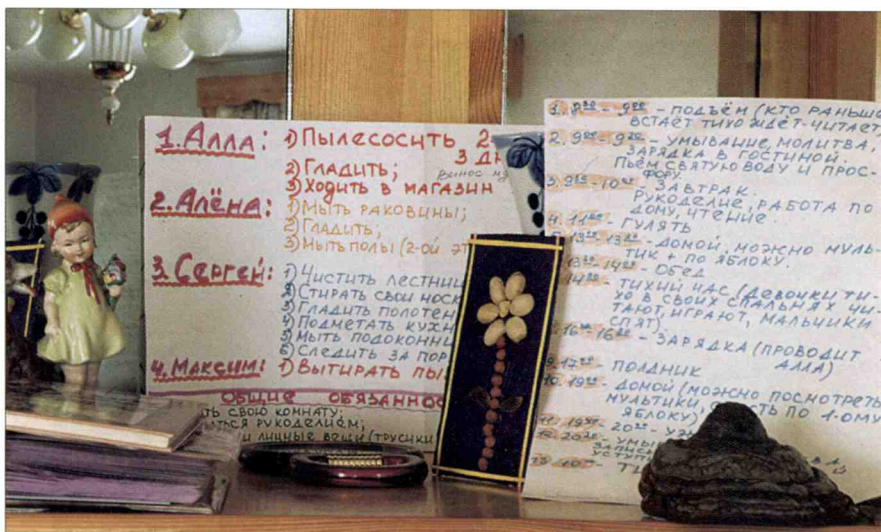 1. Алла:
1) Пылесосить 2
3 дн
вынос
2) Гладить;
3) Ходить в магазин
2. Алёна:
1) Мыть раковины;
2) Гладить;
3) Мыть полы (2-ой эт
3. Сергей:
1) Чистить лестниц
2) Стирать свои носк
3) Гладить полотен
4) Подметать кухн
5) Мыть подоконни
6) Следить за пор
4. Максим:
1) Вытирать пы
Общие обязаннос
ть свою комнату;
ться рукоделием;
и личные вещи (трусики
1. 8³⁰ - 9⁰⁰ - подъём (кто раньше
встает тихо ждёт-читает
2. 9⁰⁰ - 9²⁰ - умывание, молитва,
зарядка в гостиной.
Пьём святую воду и прос-
фору.
- завтрак.
Рукоделие, работа по
дому, чтение.
4. 11⁰⁰ - гулять
- домой, можно муль-
тик + по яблоку.
- обед
14⁰⁰ - тихий час (девочки ти-
хо в своих спальнях чи-
тают, играют, мальчики
спят).
- зарядка (проводит
Алла)
9. 17⁰⁰ - полдник
10. 19⁰⁰ - домой (можно посмотреть
мультики, есть по 1-ому
яблоку)
11. 19³⁰ - 20⁰⁰ - уж
20²⁰ - умы
запис
уступ